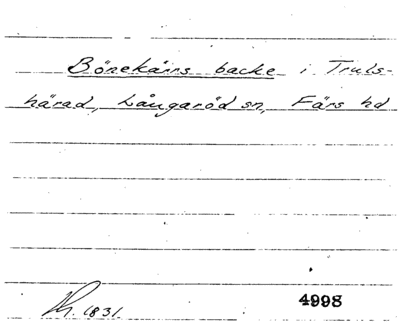 Börekärrs backe i Truls-
härad, Långaröd sn, Färs hd
1831
4998